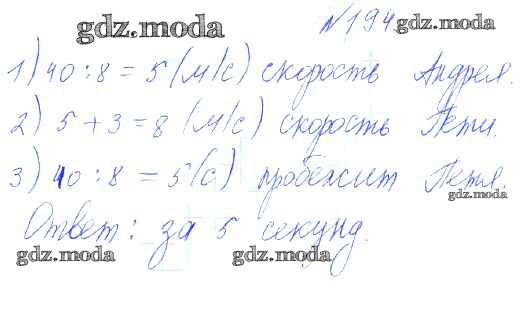 gdz.moda
№194 gdz.moda
1) 40 : 8 = 5 (м/с) скорость Андрея.
2) 5 + 3 = 8 (м/с) скорость Пети.
gdz.moda
3) 40 : 8 = 5 (с) пробежит Петя.
gdz.moda
Ответ: за 5 секунд.
gdz.moda gdz.moda